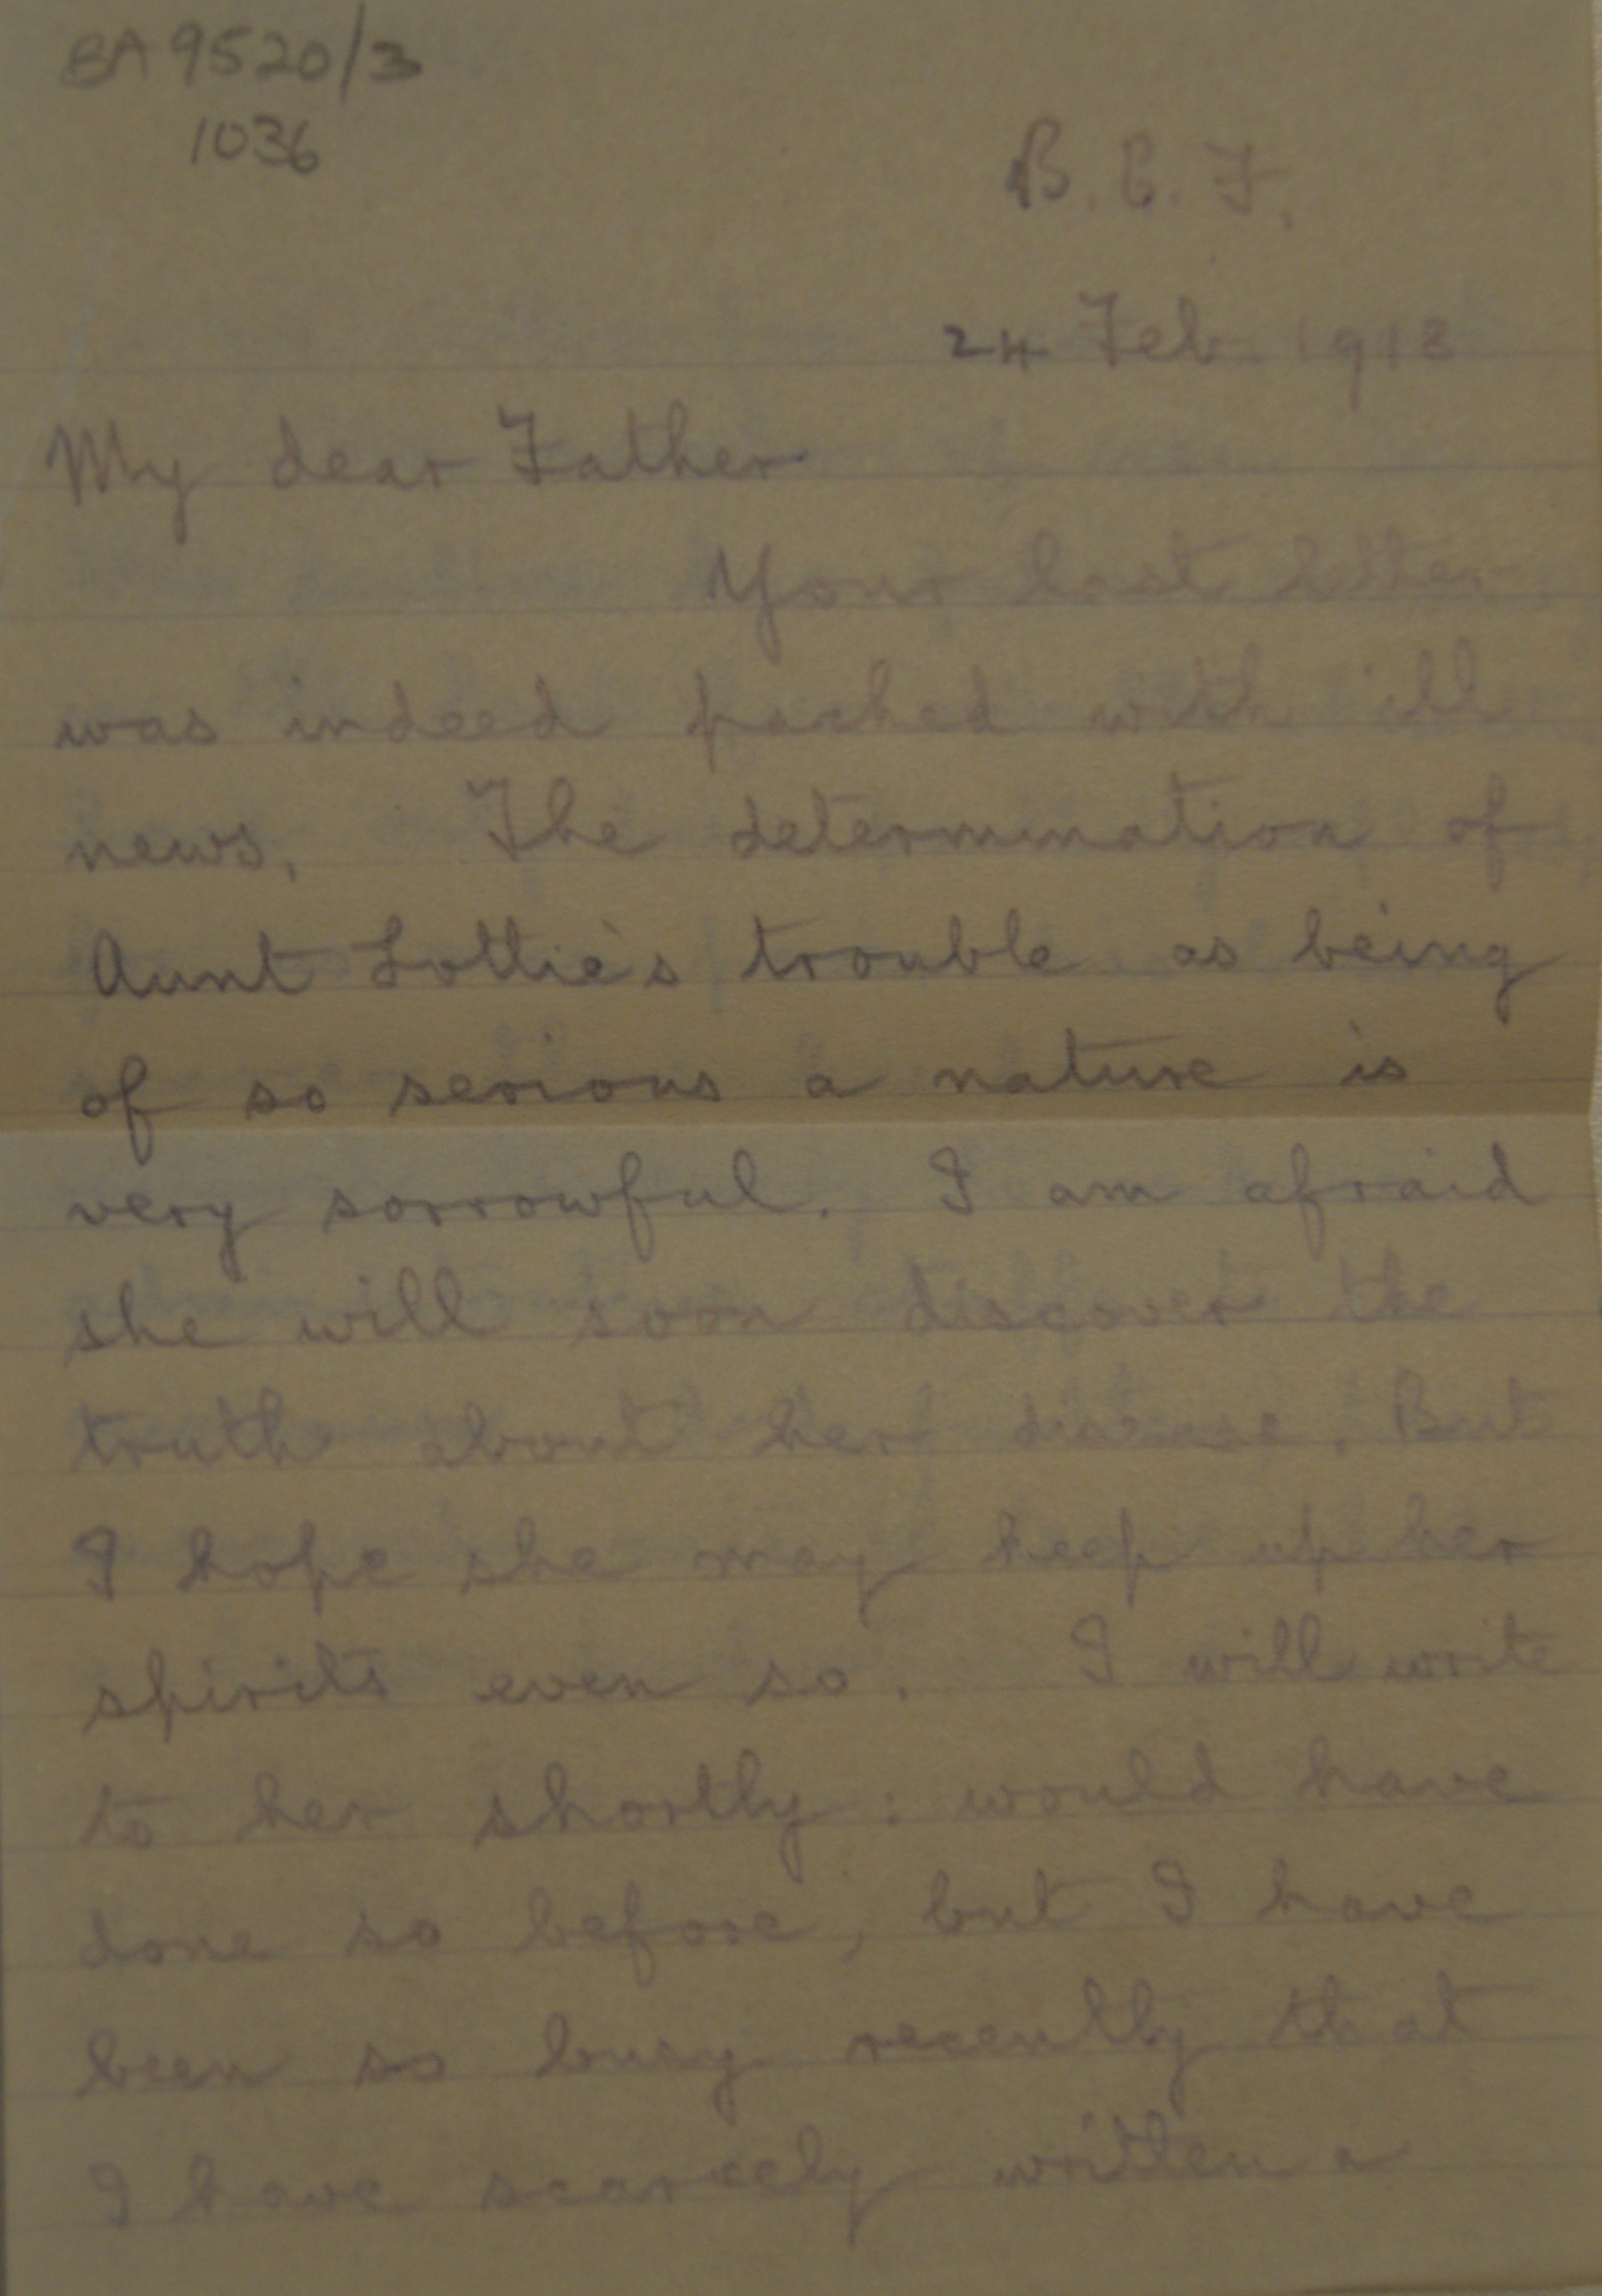 BA 9520/3
1036
B.E.F.
24 Feb 1918
My dear Father
Your last letter
was indeed packed with ill
news. The determination of
Aunt Lottie's trouble as being
of so serious a nature is
very sorrowful. I am afraid
she will soon discover the
truth about her disease. But
I hope she may keep up her
spirits even so. I will write
to her shortly: would have
done so before, but I have
been so busy recently that
I have scarcely written a